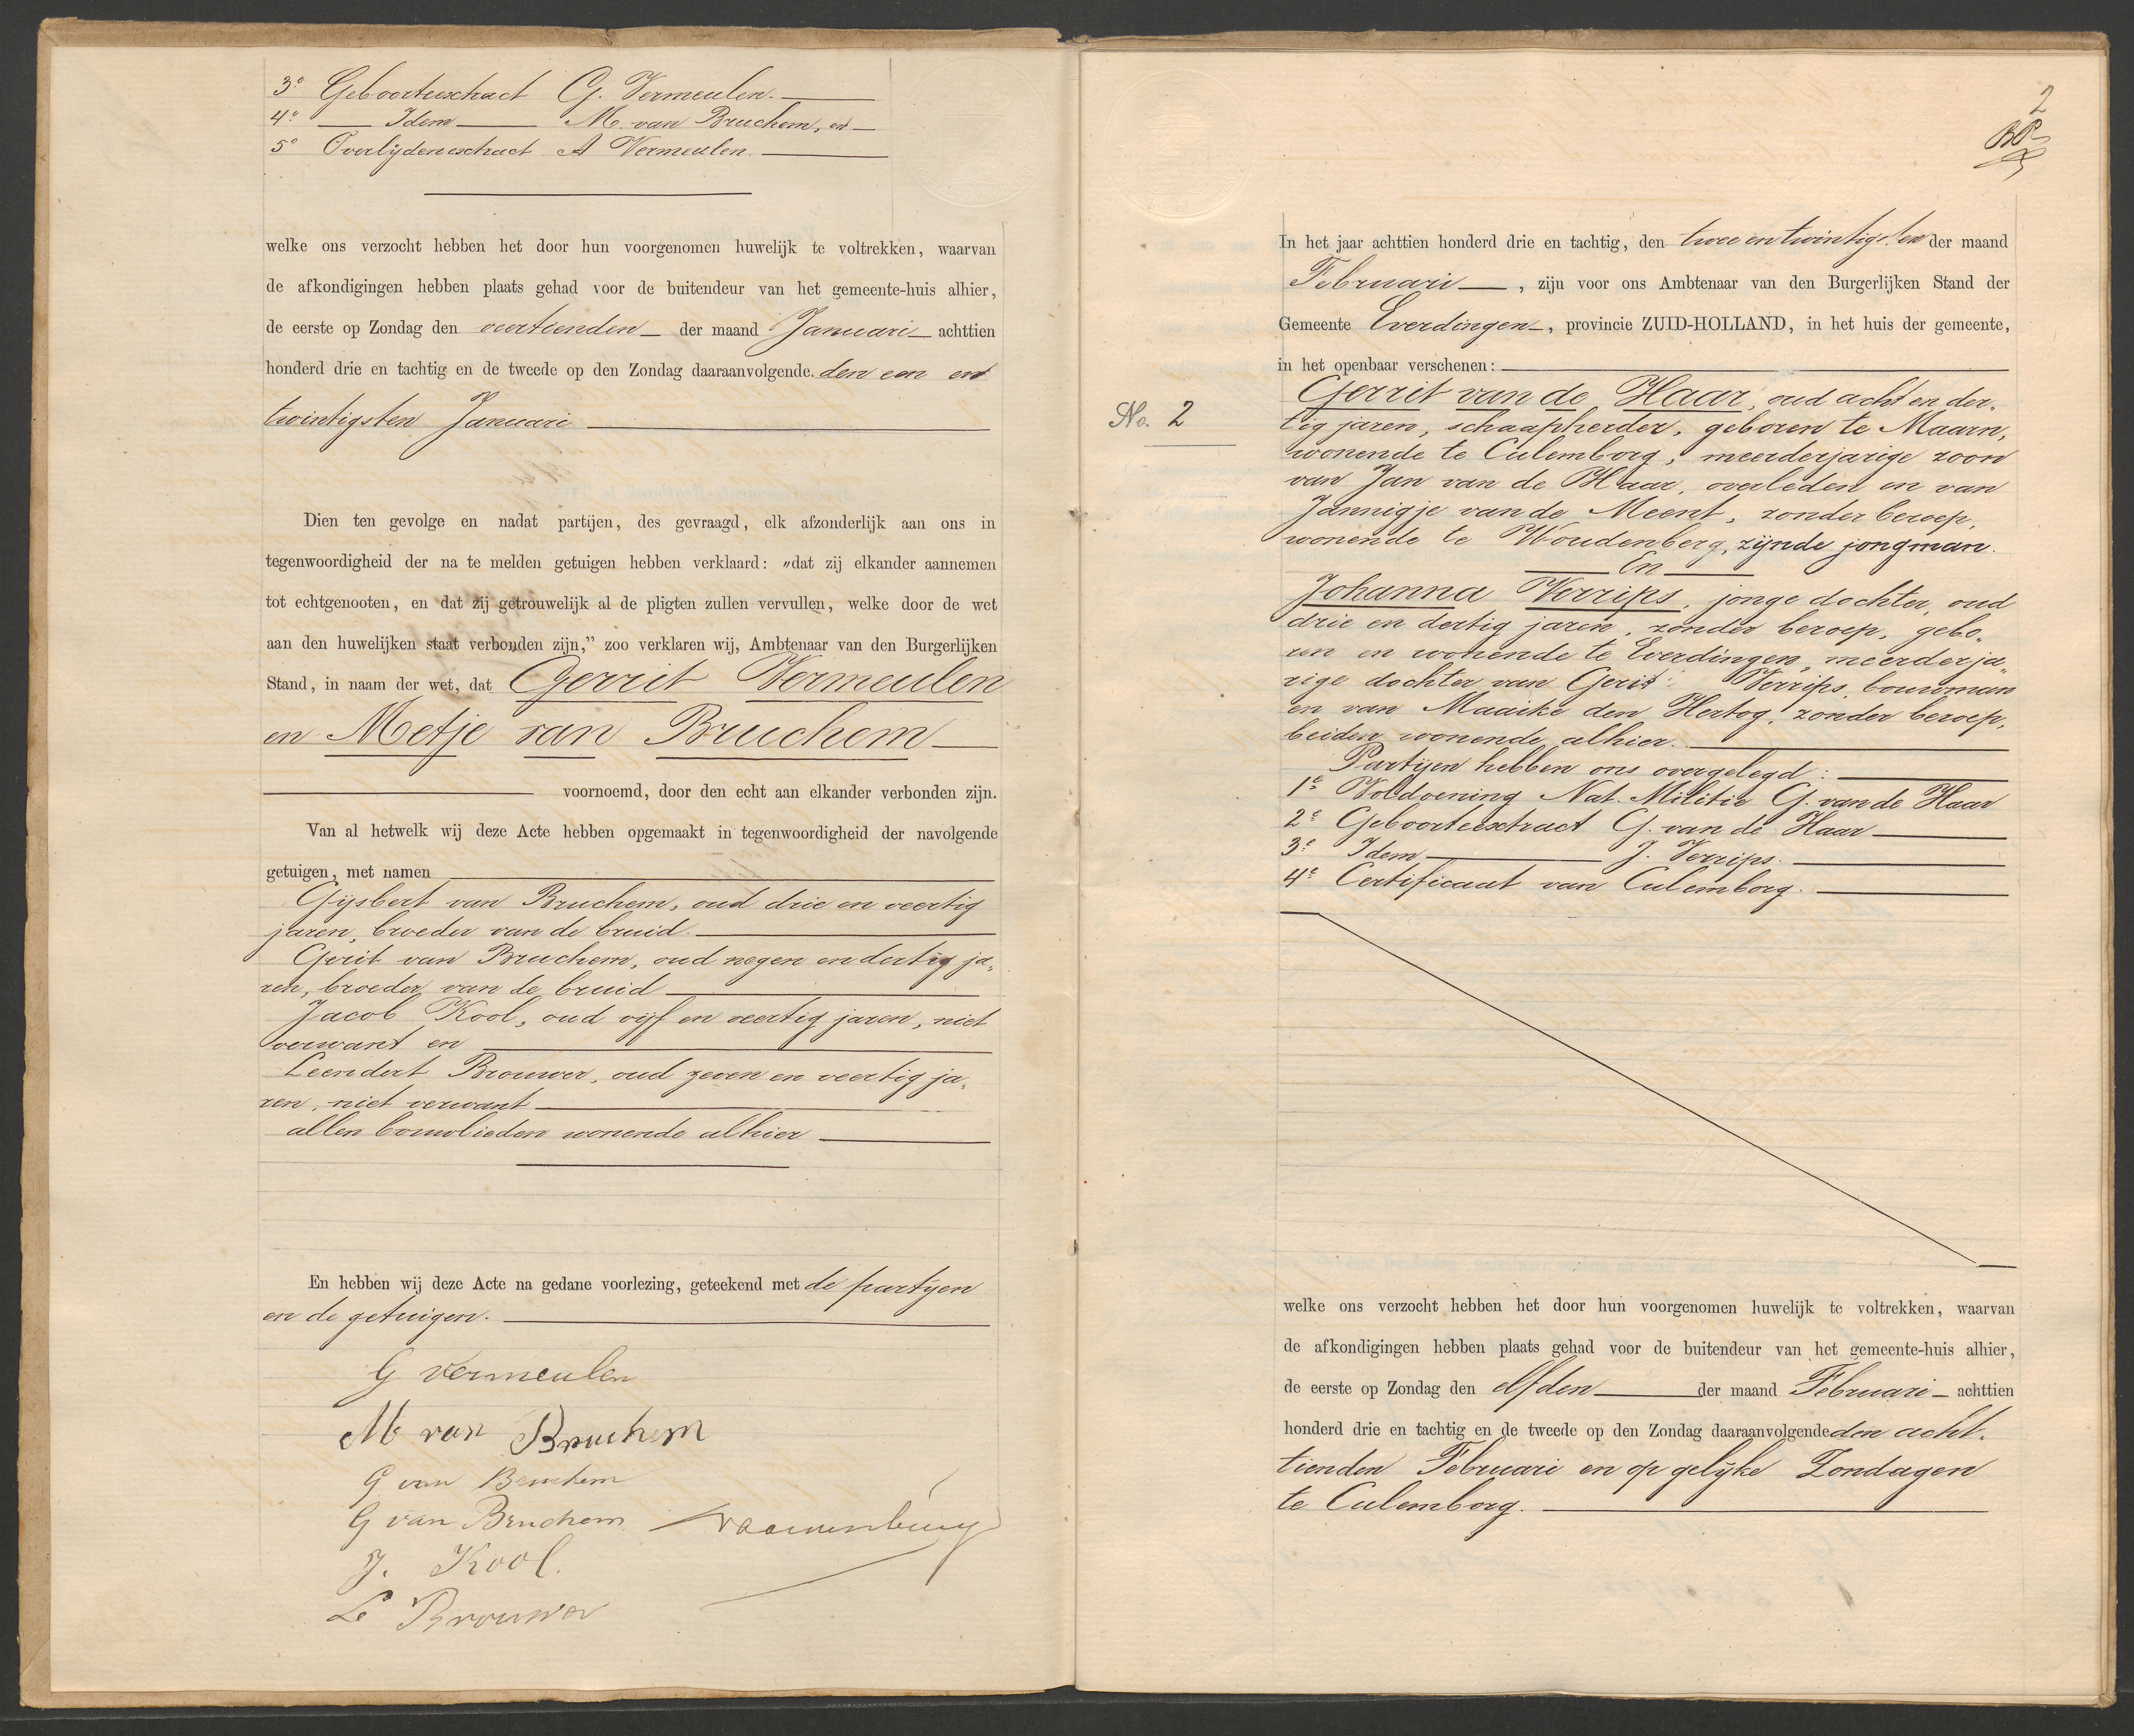 3° Geboorteextract G. Vermeulen.
4° Idem M. van Bruchem, en
5° Overlijdensextract A Vermeulen.
welke ons verzocht hebben het door hun voorgenomen huwelijk te voltrekken, waarvan
de afkondigingen hebben plaats gehad voor de buitendeur van het gemeente-huis alhier,
de eerste op Zondag den veertienden der maand Januari achttien
honderd drie en tachtig en de tweede op den Zondag daaraanvolgende. den een en
twintigsten Januari
Dien ten gevolge en nadat partijen, des gevraagd, elk afzonderlijk aan ons in
tegenwoordigheid der na te melden getuigen hebben verklaard: „dat zij elkander aannemen
tot echtgenooten, en dat zij getrouwelijk al de pligten zullen vervullen, welke door de wet
aan den huwelijken staat verbonden zijn,” zoo verklaren wij, Ambtenaar van den Burgerlijken
Stand, in naam der wet, dat Gerrit Vermeulen
en Metje van Bruchem
voornoemd, door den echt aan elkander verbonden zijn.
Van al hetwelk wij deze Acte hebben opgemaakt in tegenwoordigheid der navolgende
getuigen, met namen
Gijsbert van Bruchem, oud drie en veertig
jaren, broeder van de bruid.
Gerit van Bruchem, oud negen en dertig ja„
ren, broeder van de bruid
Jacob Kool, oud vijf en veertig jaren, niet
verwant en
Leendert Brouwer, oud zeven en veertig ja„
ren, niet verwant
allen bouwlieden wonende alhier
En hebben wij deze Acte na gedane voorlezing, geteekend met de partijen
en de getuigen.
G Vermeulen
M van Bruchem
G van Bruchem
G van Bruchem
J. Kool.
L Brouwer
2
In het jaar achttien honderd drie en tachtig, den twee en twintigsten der maand
Februari, zijn voor ons Ambtenaar van den Burgerlijken Stand der
Gemeente Everdingen, provincie ZUID-HOLLAND, in het huis der gemeente,
in het openbaar verschenen:
No. 2
Gerrit van de Haar, oud acht en der„
tig jaren, schaapherder, geboren te Maarn,
wonende te Culemborg, meerderjarige zoon
van Jan van de Haar, overleden en van
Jannigje van de Meent, zonder beroep,
wonende te Woudenberg, zijnde jongman.
En
Johanna Verrips, jonge dochter, oud
drie en dertig jaren, zonder beroep, gebo„
ren en wonende te Everdingen, meerderja„
rige dochter van Gerit Verrips, bouwman
en van Maaike den Hertog, zonder beroep,
beiden wonende alhier.
Partijen hebben ons overgelegd:
1e Voldoening Nat. Militie G. van de Haar
2e Geboorteextract G. van de Haar
3e Idem J. Verrips.
4e Certificaat van Culemborg.
welke ons verzocht hebben het door hun voorgenomen huwelijk te voltrekken, waarvan
de afkondigingen hebben plaats gehad voor de buitendeur van het gemeente-huis alhier,
de eerste op Zondag den elfden der maand Februari achttien
honderd drie en tachtig en de tweede op den Zondag daaraanvolgende den acht„
tienden Februari en op gelijke Zondagen
te Culemborg.